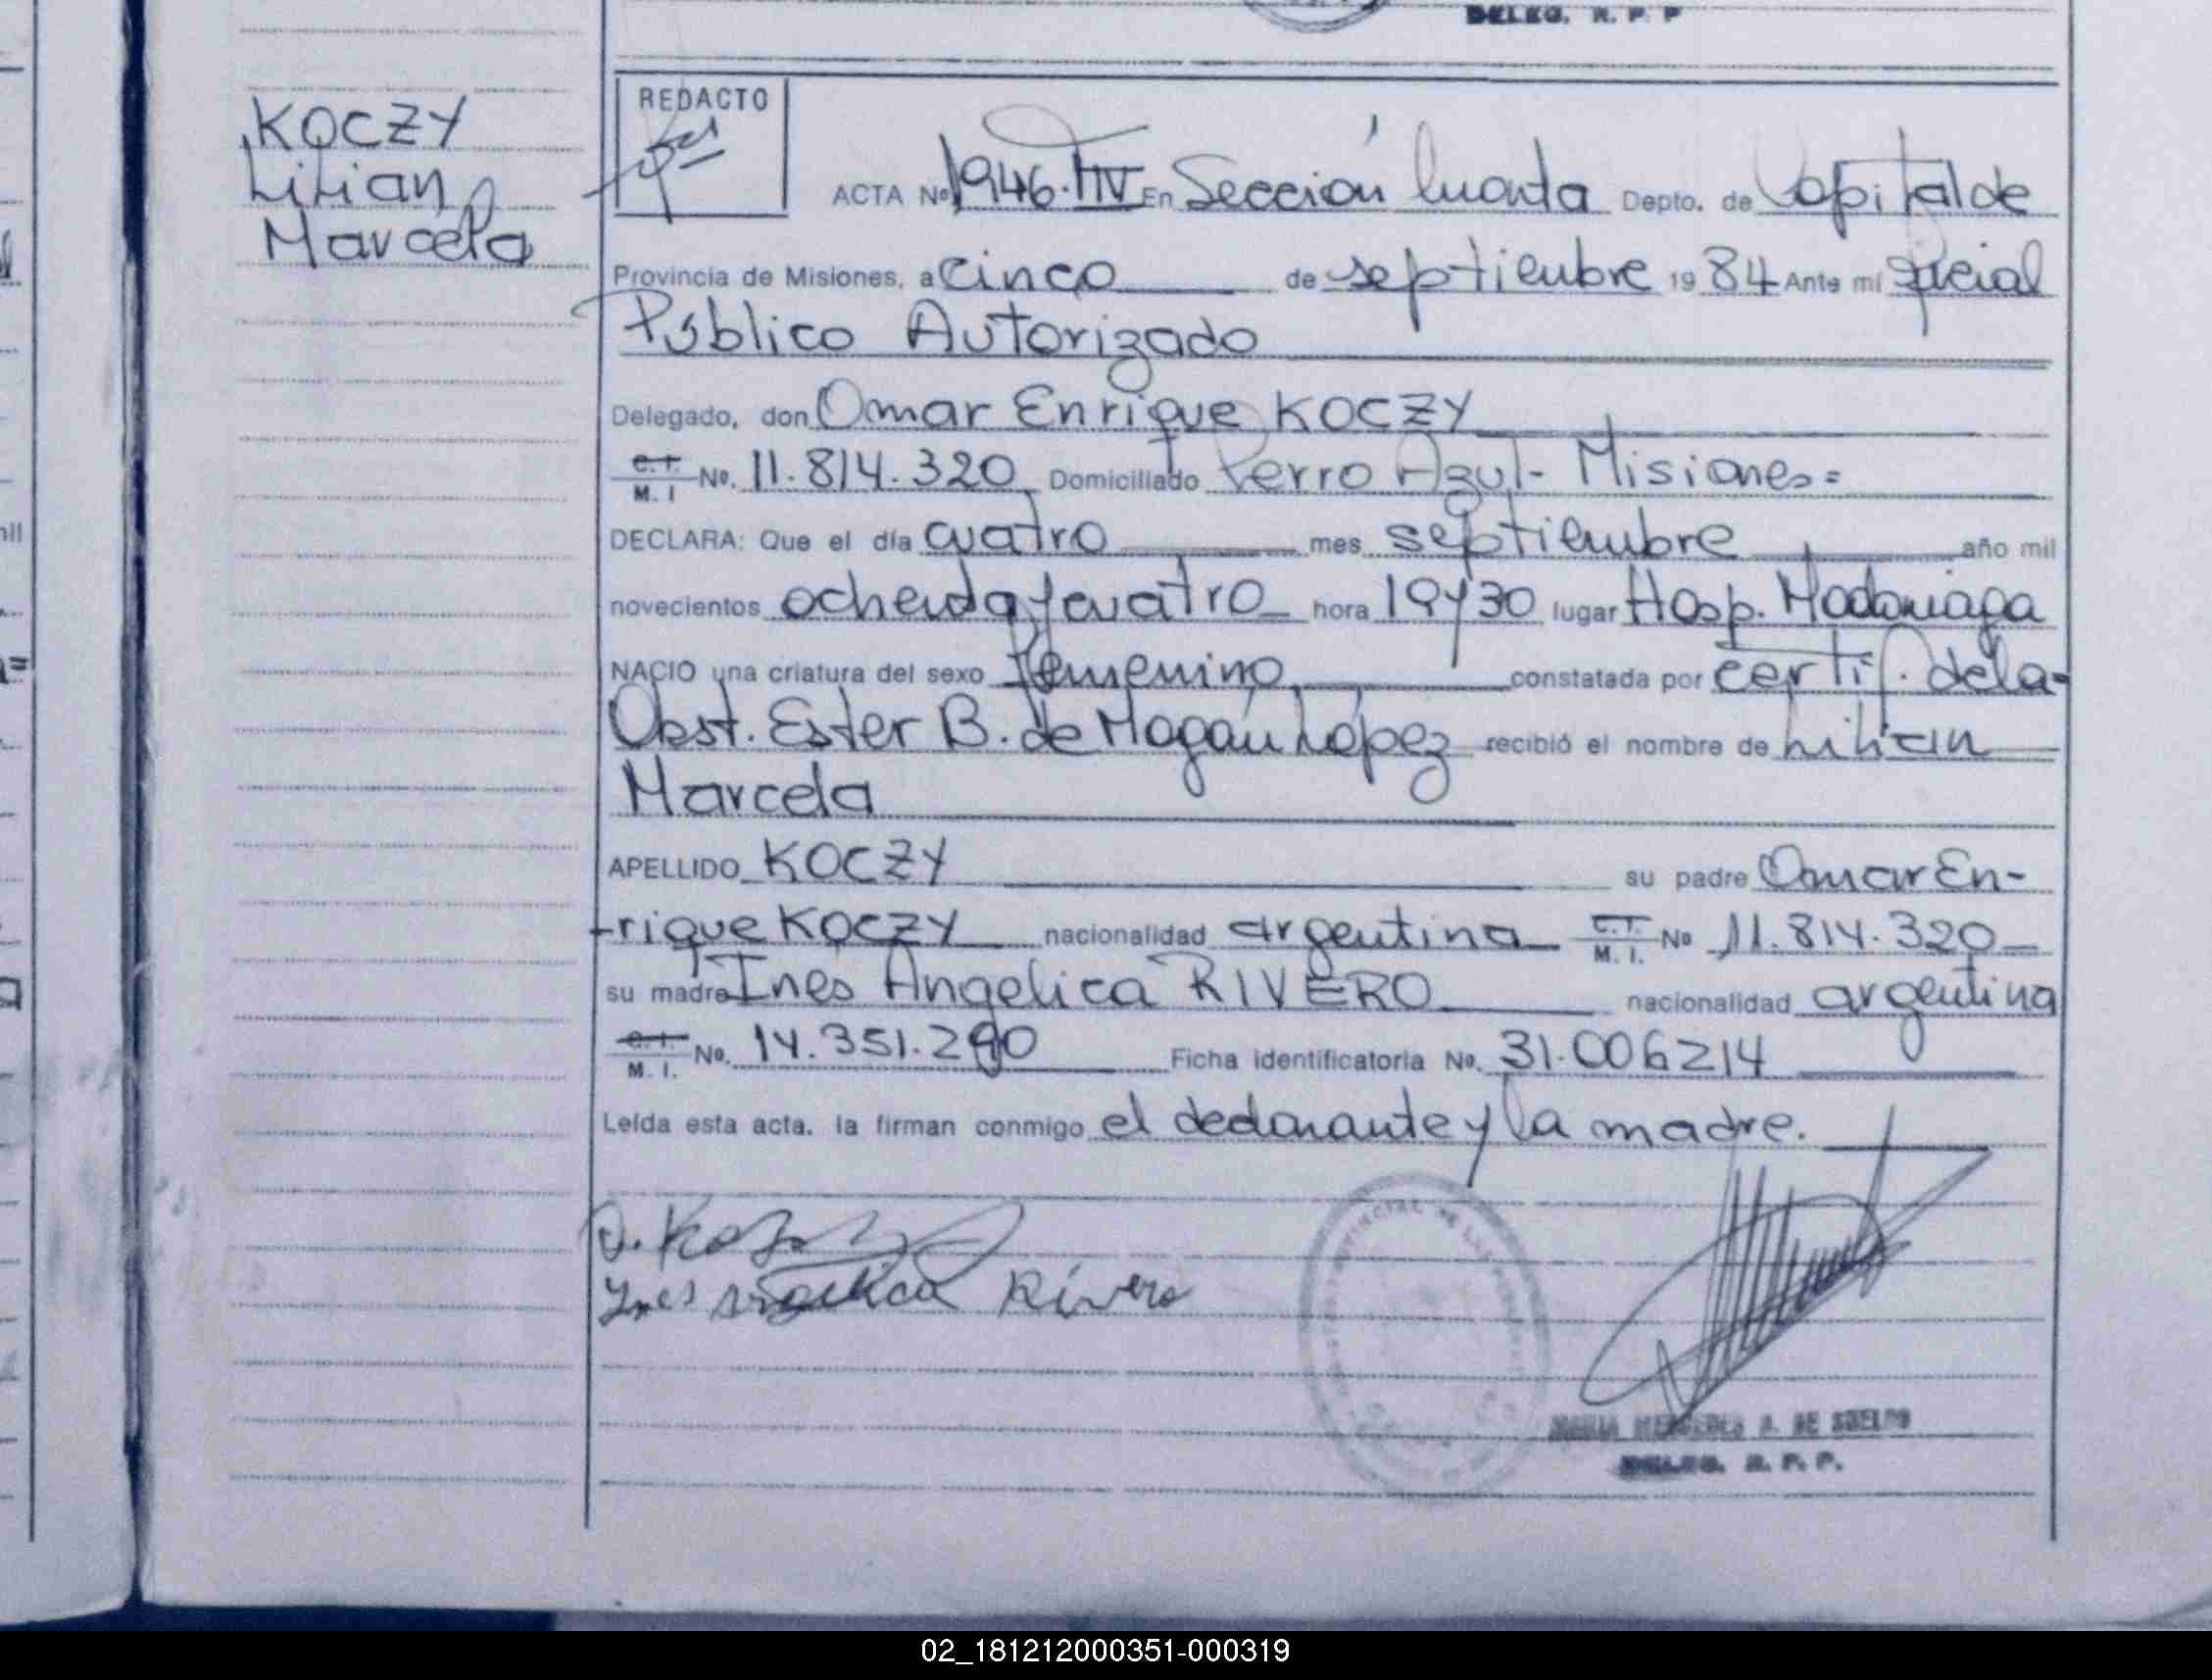 DELEG. R. P. P
KOCZY
Lilian
Marcela
REDACTO
ACTA Nº 1946. T IV En Sección Cuarta Depto. de Capital de
Provincia de Misiones, a cinco de septiembre 19 84 Ante mí Oficial
Público Autorizado
Delegado, don Omar Enrique KOCZY
C.I. M. I Nº. 11.814.320 Domiciliado Perro Azul - Misiones =
DECLARA: Que el día cuatro mes septiembre año mil
novecientos ochenta y cuatro hora 19y30 lugar Hosp. Madariaga
NACIO una criatura del sexo femenino constatada por certif. de la-
Obst. Ester B. de Magán López recibió el nombre de Lilian
Marcela
APELLIDO KOCZY su padre Omar En-
-rique KOCZY nacionalidad argentina C.I. M. I. Nº 11.814.320
su madre Ines Angelica RIVERO nacionalidad argentina
C.I. M. I. Nº. 14.351.290 Ficha identificatoria Nº. 31.006214
Leída esta acta, la firman conmigo el declarante y la madre.
Ines Angelica Rivero
MARIA MERCEDES
DELEG. R. P. P.
02_181212000351-000319